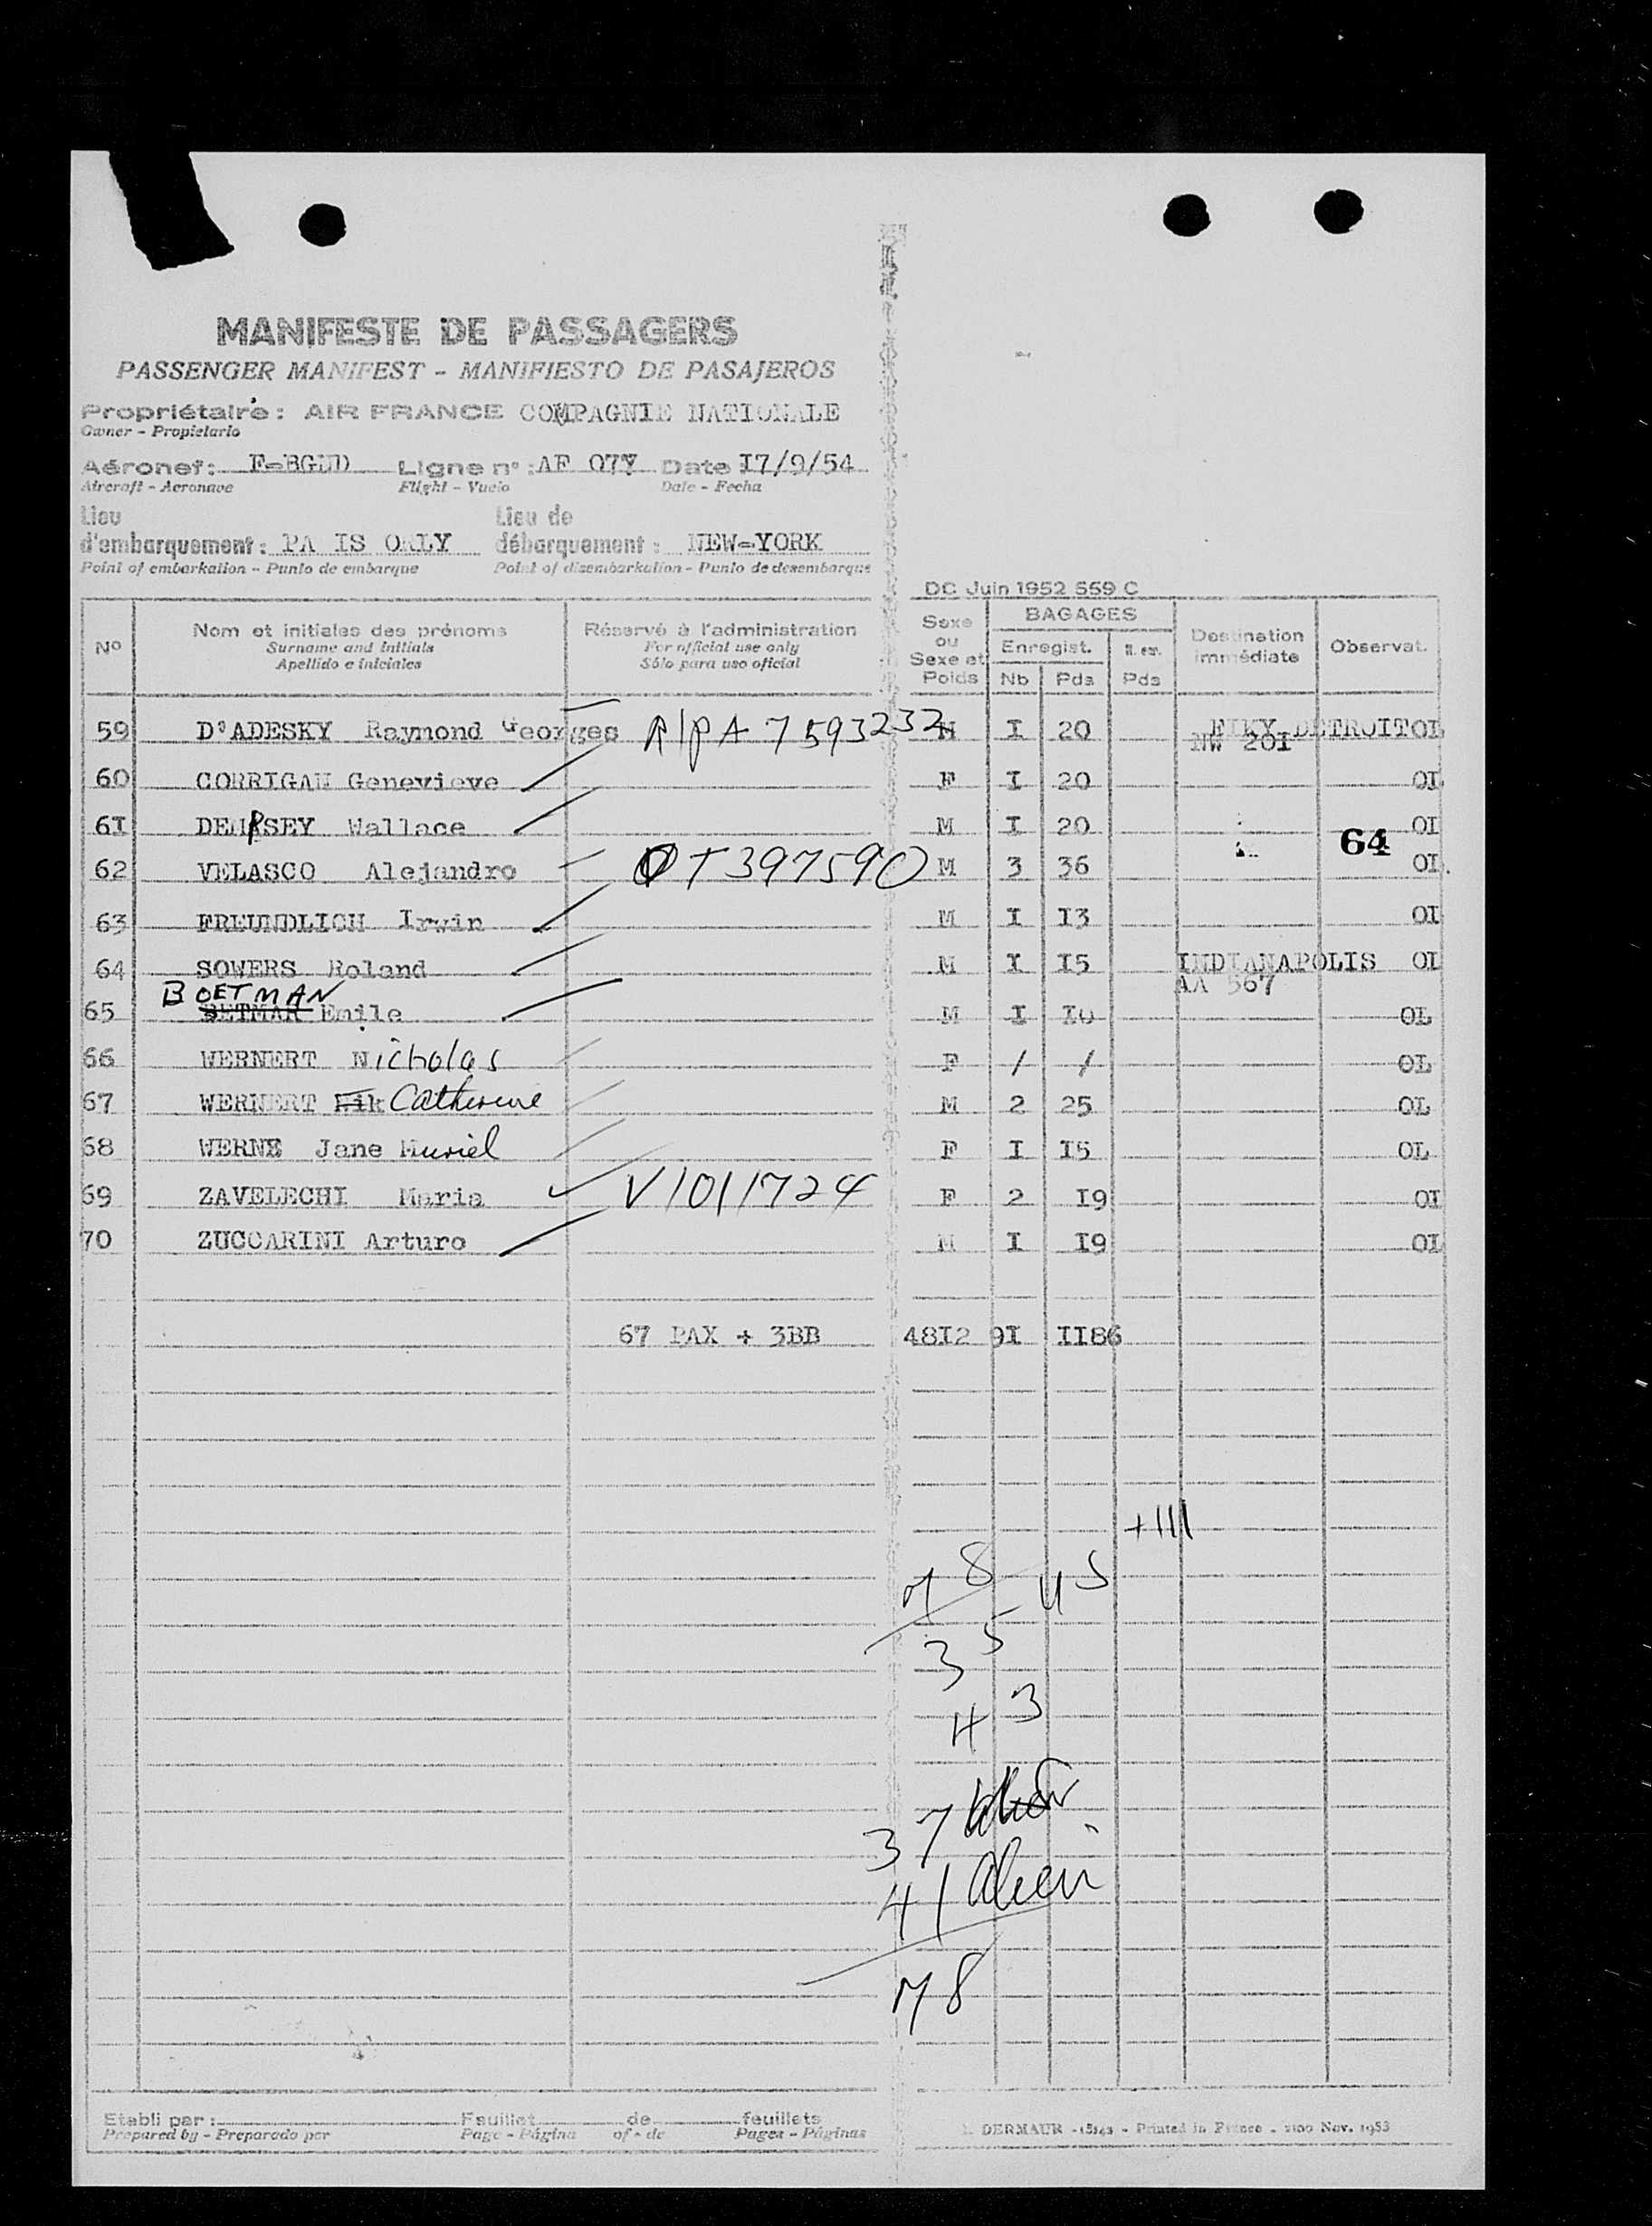 MANIFESTE DE PASSAGERS
PASSENGER MANIFEST - MANIFIESTO DE PASAJEROS
Propriétaire: AIR FRANCE COMPAGNIE NATIONALE
Owner - Propietario
Aéronef: Ligne n°: AF 077 Date I7/9/54
Aircraft - Aeronave Flight - Vuelo Date - Fecha
Lieu Lieu de
d'embarquement: PA IS ORLY débarquement: NEW-YORK
Point of embarkation - Punto de embarque Point of disembarkation - Punto de desembarque
DC Juin 1952 559 C
N° Nom et initiales des prénoms Réservé à l'administration Sexe ou Sexe et Poids BAGAGES Destination immédiate Observat.
Surname and initials For official use only Enregist.
Apellido e iniciales Sólo para uso oficial Nb Pds Pds
59 D'ADESKY Raymond Georges A/PA 7593232 I 20 DETROIT OI
NW 20I
60 CORRIGAN Genevieve F I 20 OI
6I DEMPSEY Wallace M I 20 OI
64
62 VELASCO Alejandro OT397590 M 3 36 OI.
63 FREUNDLICH Irwin M I I3 OI
64 SOWERS Roland M I I5 INDIANAPOLIS OI
AA 567
BOETMAN
65 BETMAR Emile M I I0 OL
66 WERNERT Nicholas F / / OL
67 WERNERT Nik Catherine M 2 25 OL
68 WERNE Jane Muriel F I I5 OL
69 ZAVELECHI Maria V1011724 F 2 I9 OI
70 ZUCCARINI Arturo M I I9 OI
67 PAX + 3BB 48I2 9I II86
+111
78 - 45
35
43
37
41 alien
78
Etabli par: Feuillet de feuillets
Prepared by - Preparado por Page - Página of - de Pages - Páginas
DERMAUR - 18143 - Printed in France - 2100 Nov. 1953